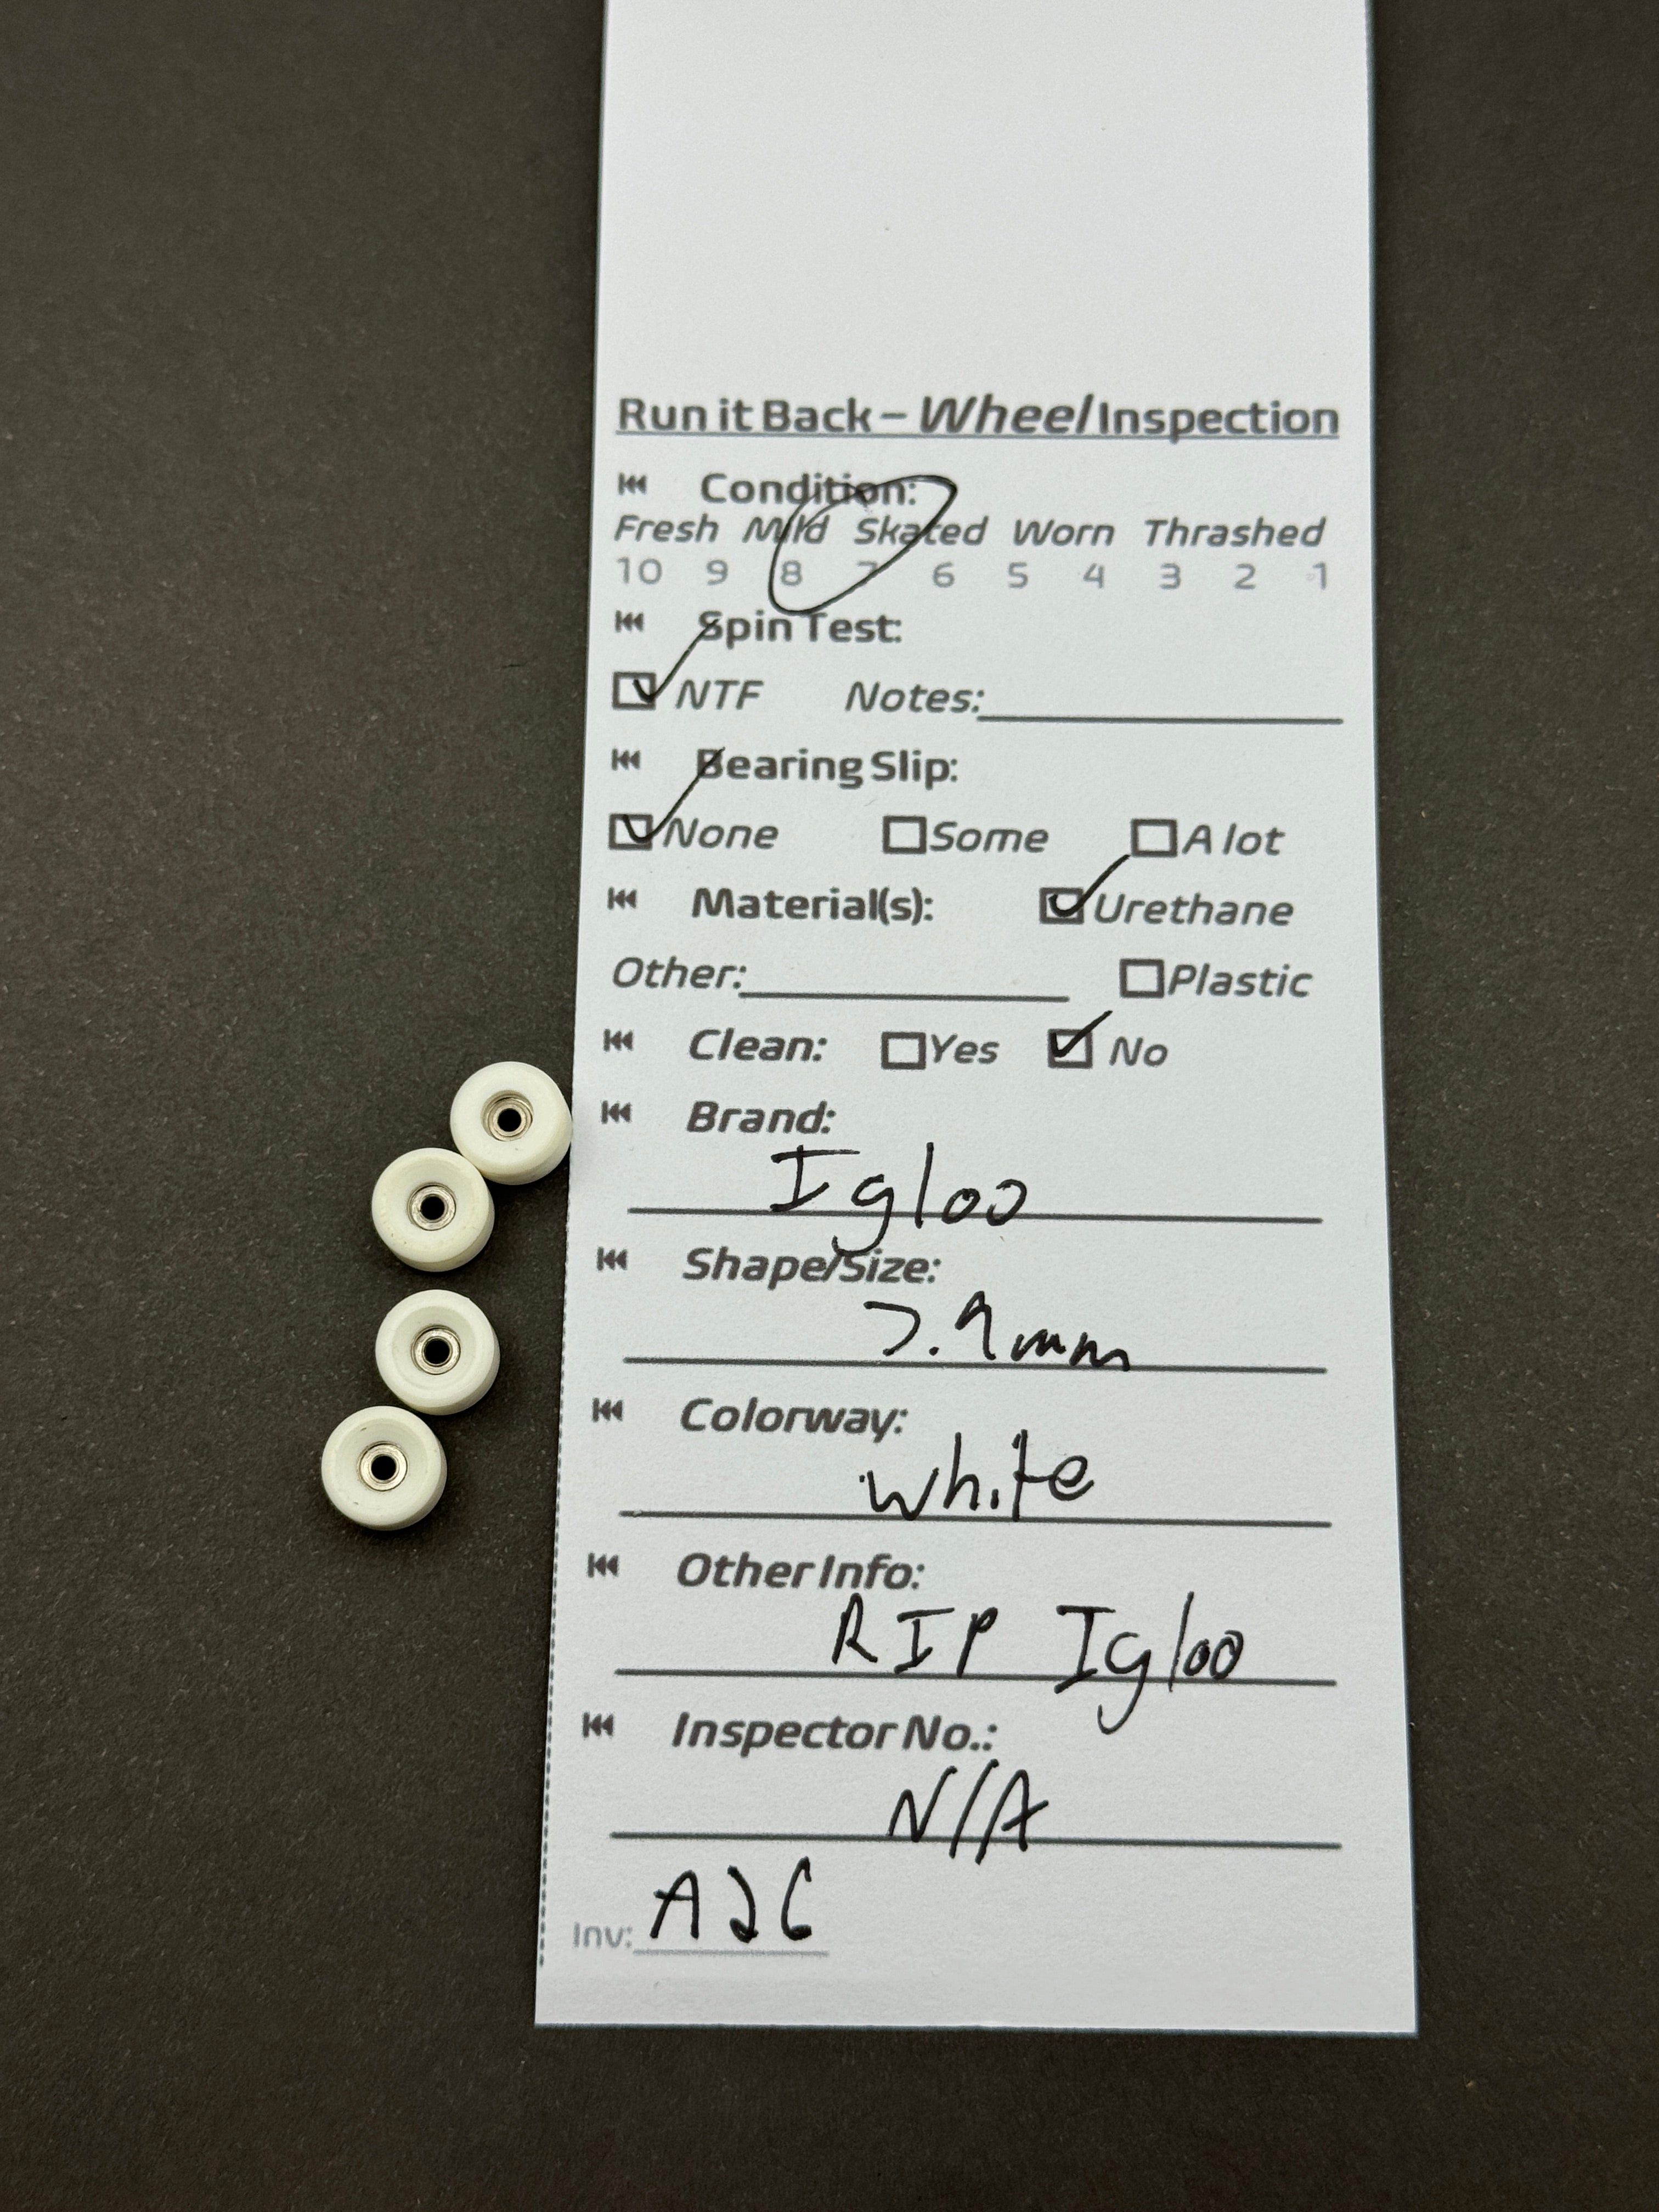 Run it Back – Wheel Inspection
Condition:
Fresh Mild Skated Worn Thrashed
10 9 8 7 6 5 4 3 2 1
Spin Test:
NTF Notes:
Bearing Slip:
None Some A lot
Material(s): Urethane
Other: Plastic
Clean: Yes No
Brand:
Igloo
Shape/Size:
7.9mm
Colorway:
white
Other Info:
RIP Igloo
Inspector No.:
N/A
Inv: A26